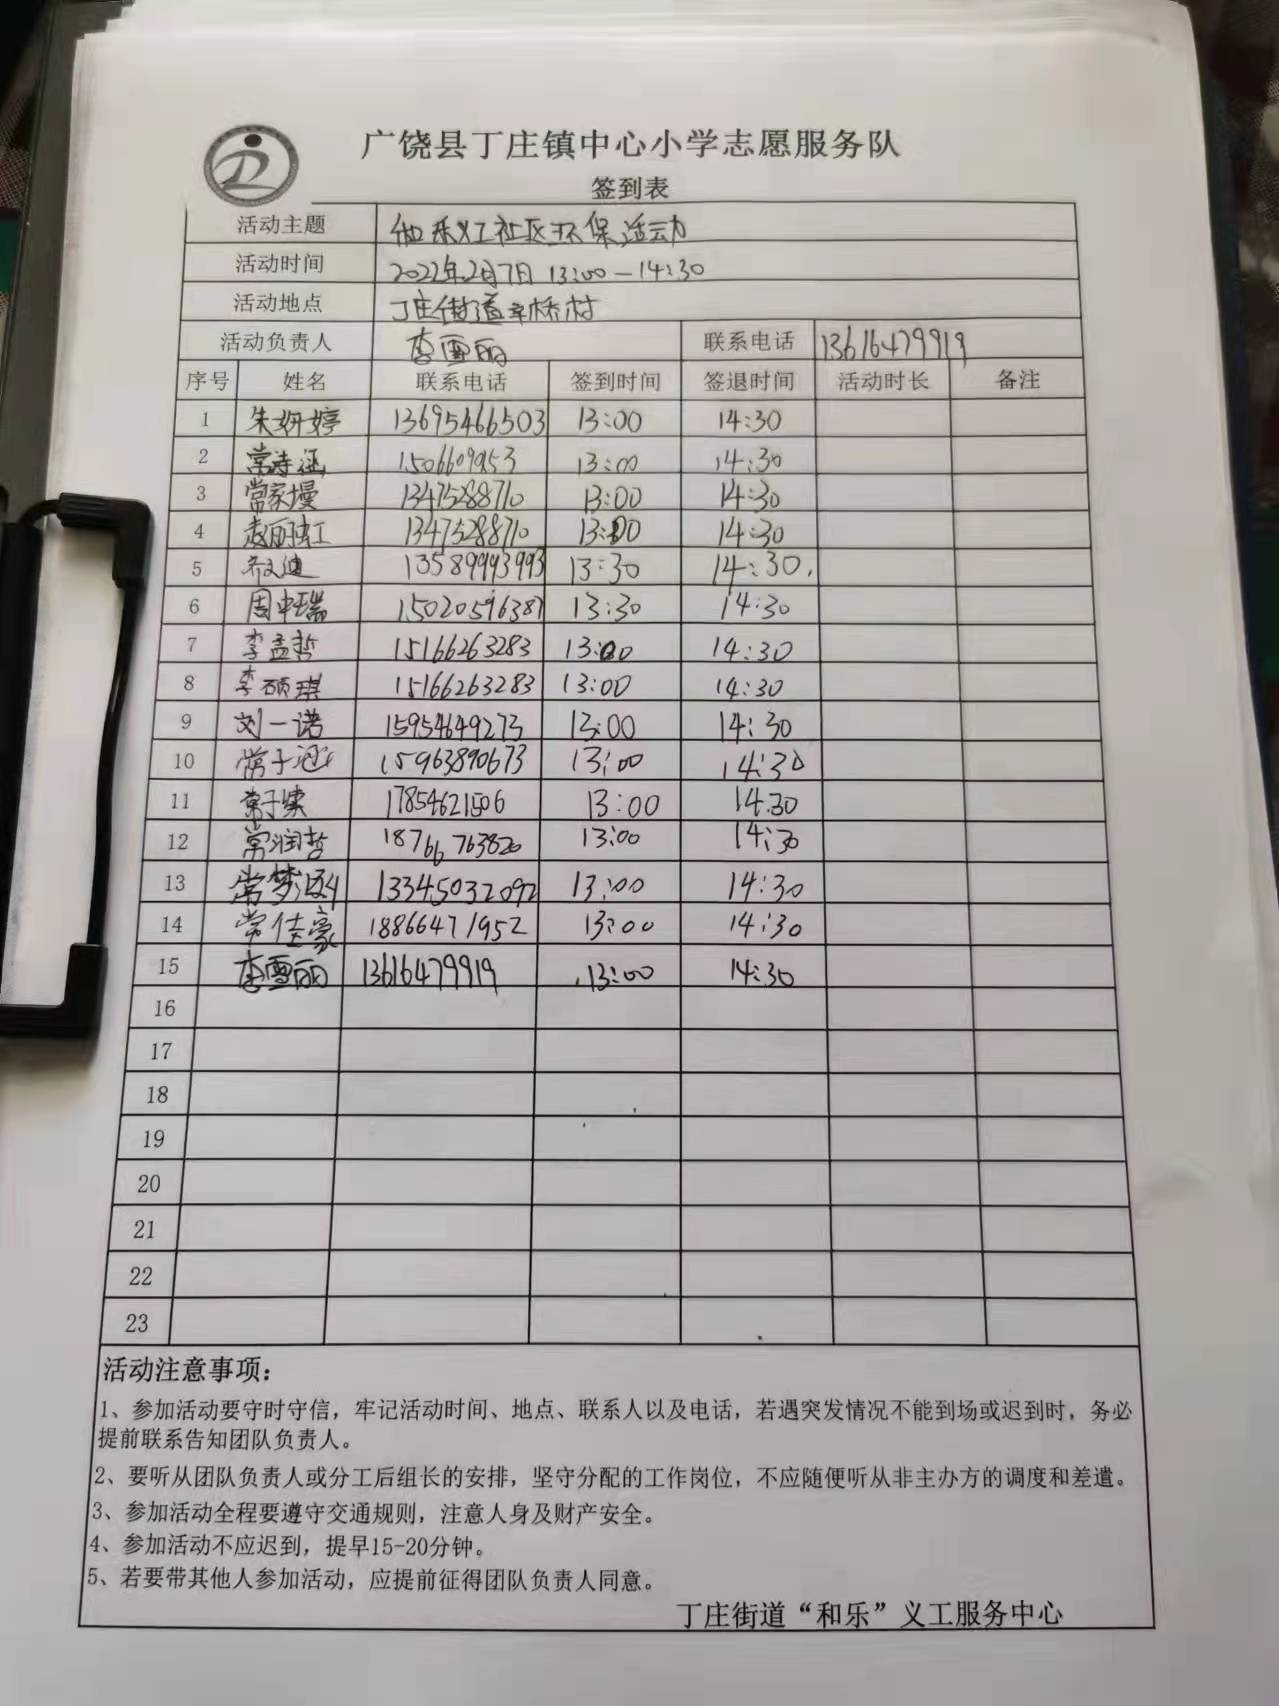 广饶县丁庄镇中心小学志愿服务队
签到表
活动主题 和乐义工社区环保活动
活动时间 2022年2月7日 13:00—14:30
活动地点 丁庄街道辛桥村
活动负责人 李雪丽 联系电话 13616479919
序号 姓名 联系电话 签到时间 签退时间 活动时长 备注
1 朱妍婷 13695466503 13:00 14:30
2 常诗涵 1506609953 13:00 14:30
3 常家墁 13475288710 13:00 14:30
4 赵丽红 13475288710 13:00 14:30
5 13589993993 13:30 14:30.
6 周中瑞 15020596387 13:30 14:30
7 李孟哲 15166263283 13:00 14:30
8 李硕琪 15166263283 13:00 14:30
9 刘一诺 15954649273 13:00 14:30
10 常子涵 15963890673 13:00 14:30
11 常子 17854621506 13:00 14:30
12 常润哲 18766763820 13:00 14:30
13 常梦 13345032092 13:00 14:30
14 常佳豪 18866471952 13:00 14:30
15 李雪丽 13616479919 13:00 14:30
16
17
18
19
20
21
22
23
活动注意事项：
1、参加活动要守时守信，牢记活动时间、地点、联系人以及电话，若遇突发情况不能到场或迟到时，务必
提前联系告知团队负责人。
2、要听从团队负责人或分工后组长的安排，坚守分配的工作岗位，不应随便听从非主办方的调度和差遣。
3、参加活动全程要遵守交通规则，注意人身及财产安全。
4、参加活动不应迟到，提早15-20分钟。
5、若要带其他人参加活动，应提前征得团队负责人同意。
丁庄街道“和乐”义工服务中心